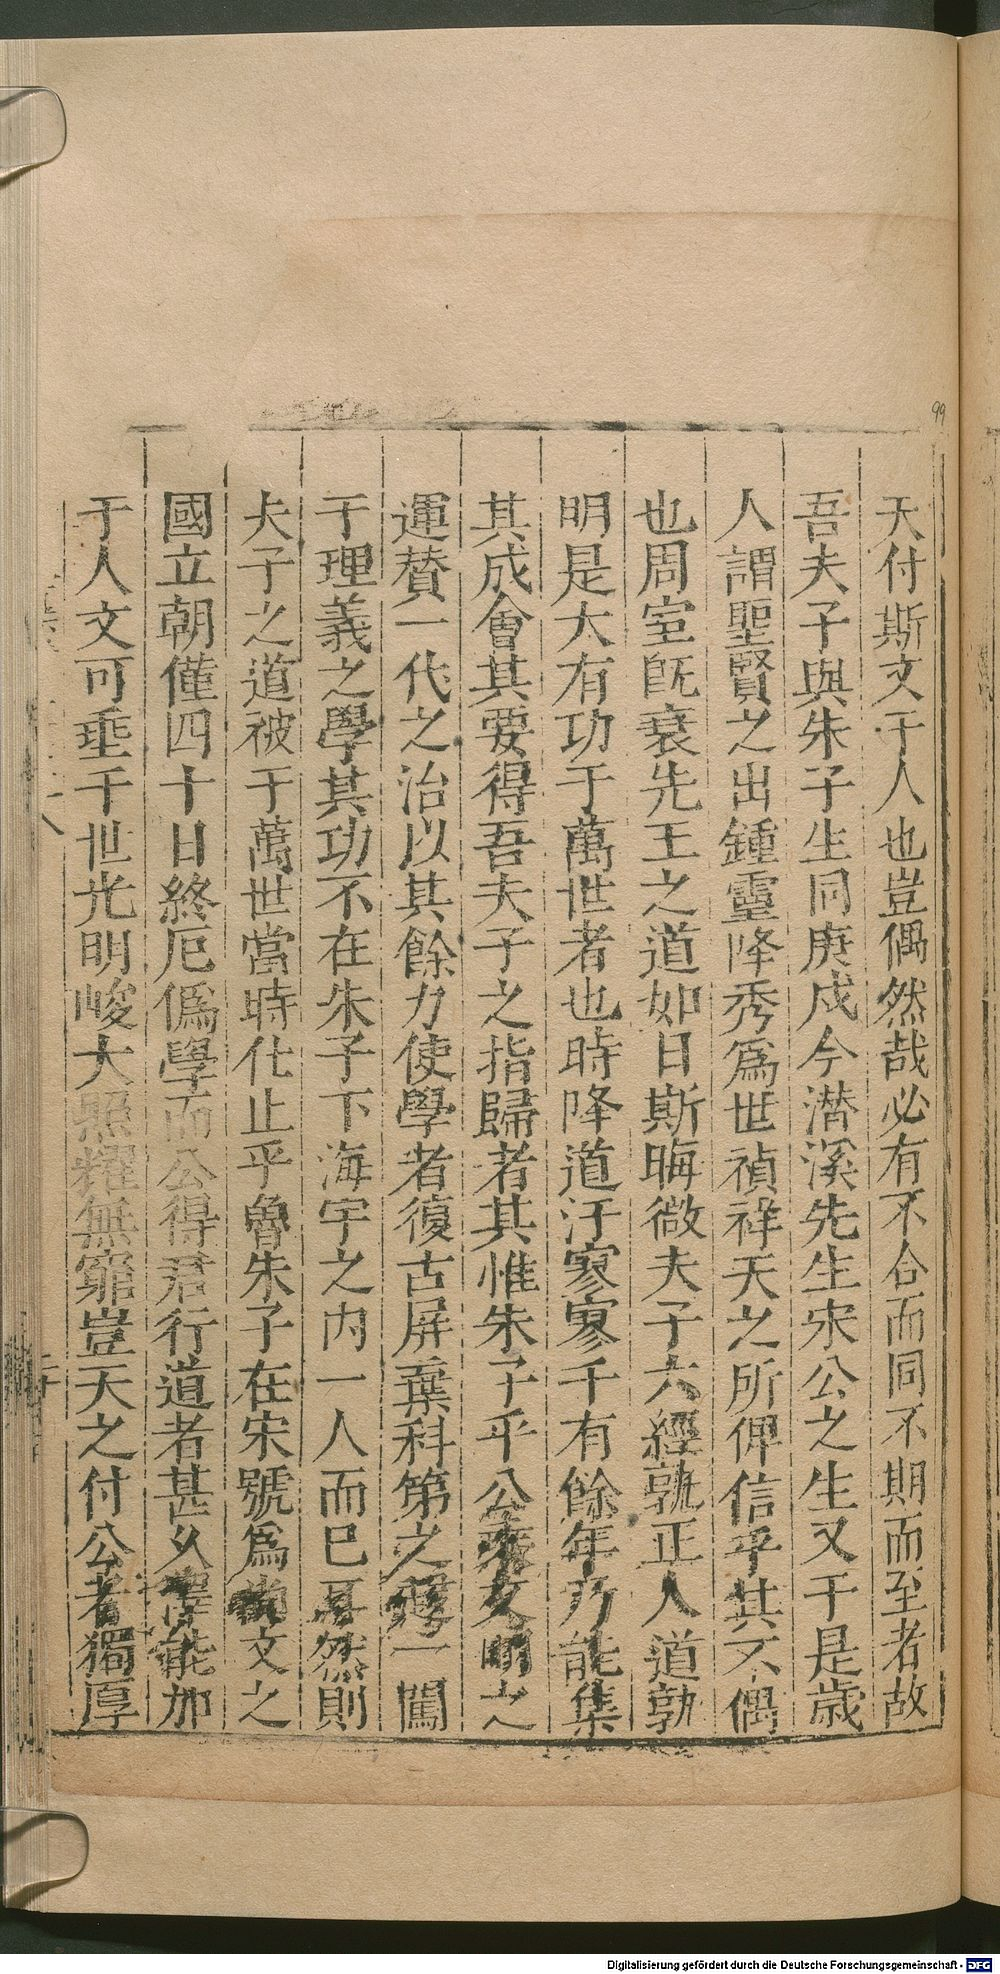 天付斯文于人也豈偶然哉必有不合而同不期而至者故
吾夫子與朱子生同庚戌今潜溪先生宋公之生又于是歲
人謂聖賢之出鍾靈降秀爲世禎祥天之所俾信乎其不偶
也周室既衰先王之道如日斯晦微夫子六經孰正人道孰
明是大有功于萬世者也時降道汙寥寥千有餘年乃能集
其成會其要得吾夫子之指歸者其惟朱子乎公乘文明之
運賛一代之治以其餘力使學者復古屏棄科第之一闖
于理義之學其功不在朱子下海宇之内一人而已然則
夫子之道被于萬世當時仕止乎魯朱子在宋號爲文之
國立朝僅四十日終厄僞學而公得君行道者甚久澤能加
于人文可垂千世光明峻大照耀無窮豈天之付公者獨厚
99
Digitalisierung gefördert durch die Deutsche Forschungsgemeinschaft - DFG